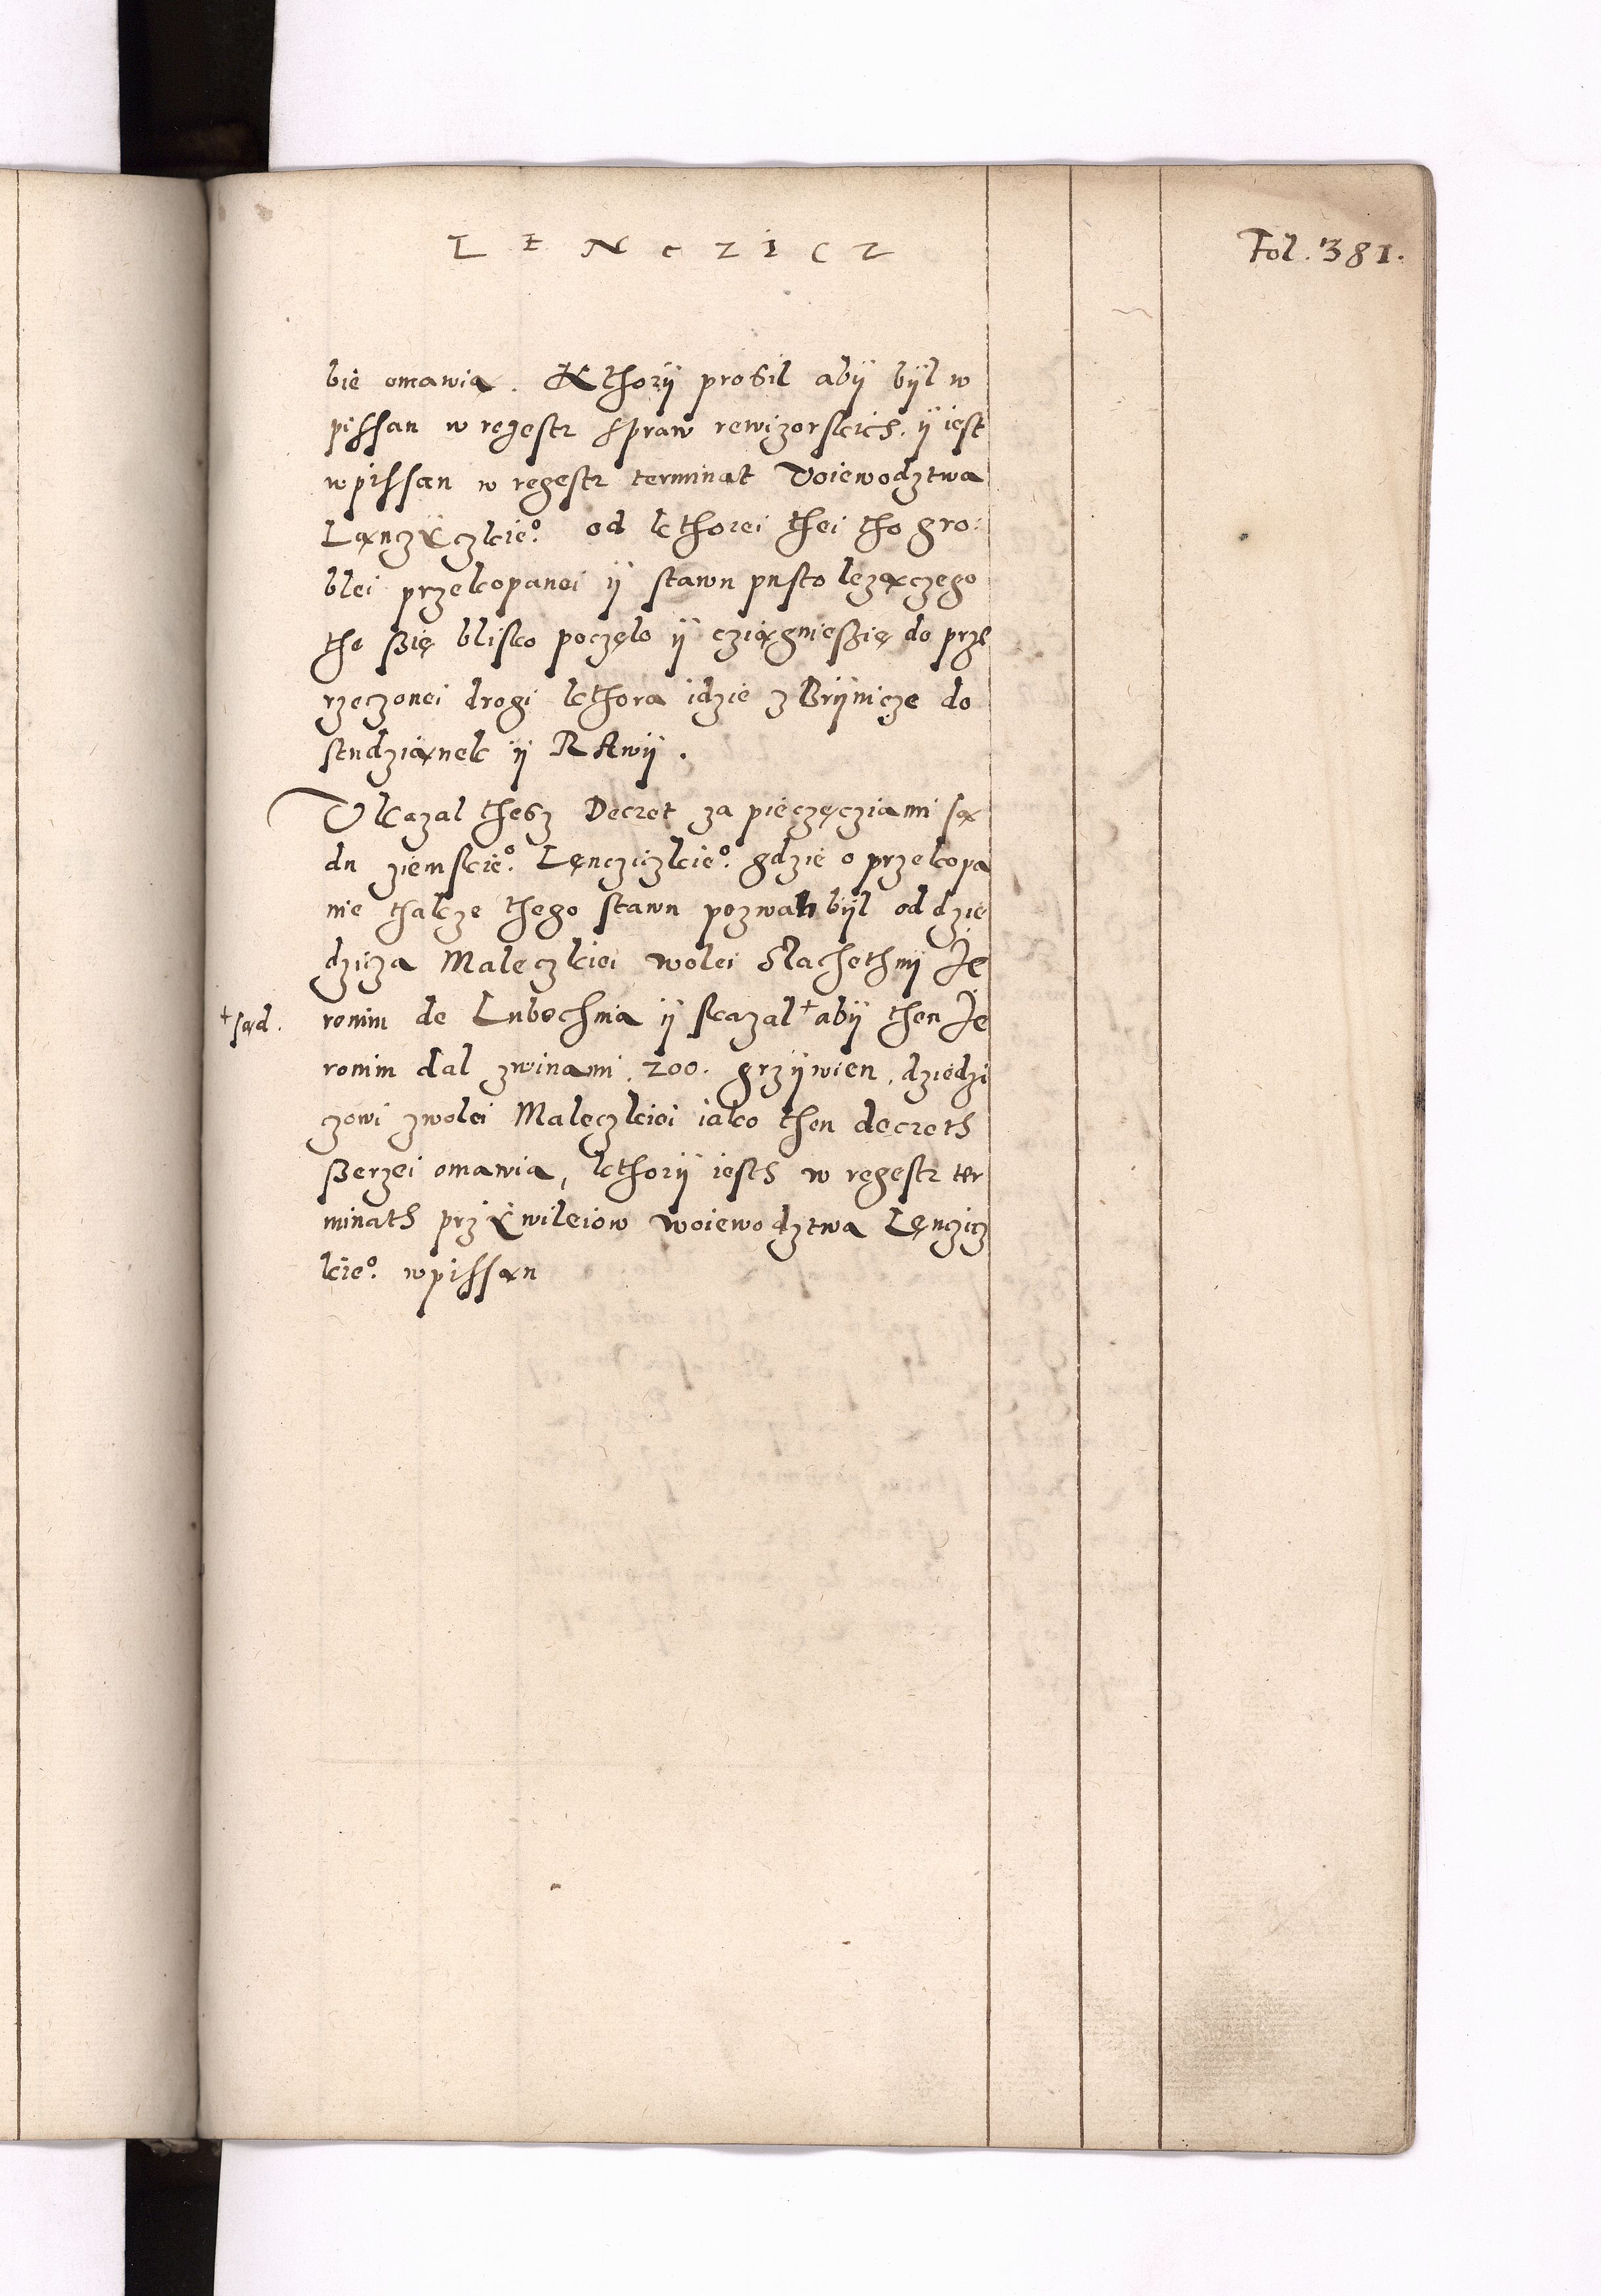 LENCZICZ
Fol. 381.
bie omawia. Kthorÿ prosil abÿ bÿl w
pissan w regestr spraw rewizorskich. ÿ iest
wpissan w regestr terminat Voiewodztwa
Lęnczÿczkie°. od kthorei thei tho gro:
blei przekopanei ÿ stawu pusto lezączego
tho ßię blisko poczęło ÿ cziągnießię do prze
rzeczonei drogi kthora idzie z Brÿnicze do
studzianek ÿ RAwÿ.
Vkazal thesz Decret za pieczęcziami są
du ziemskie°. Lęncziczkie°. gdzie o przekopa
nie thakze thego stawu pozwan bÿl od dzie
dzicza Maleczkiei wolei Slachethnÿ Je
+ sąd.
ronim de Lubochnia ÿ skazal + abÿ then Je
ronim dal zwinami. 200. grzÿwien, dziedzi
czowi zwolei Maleczkiei iako then decreth
ßerzei omawia, kthorÿ iesth w regestr ter
minath przÿwileiow woiewodztwa Lęnczicz
kie°. wpissan